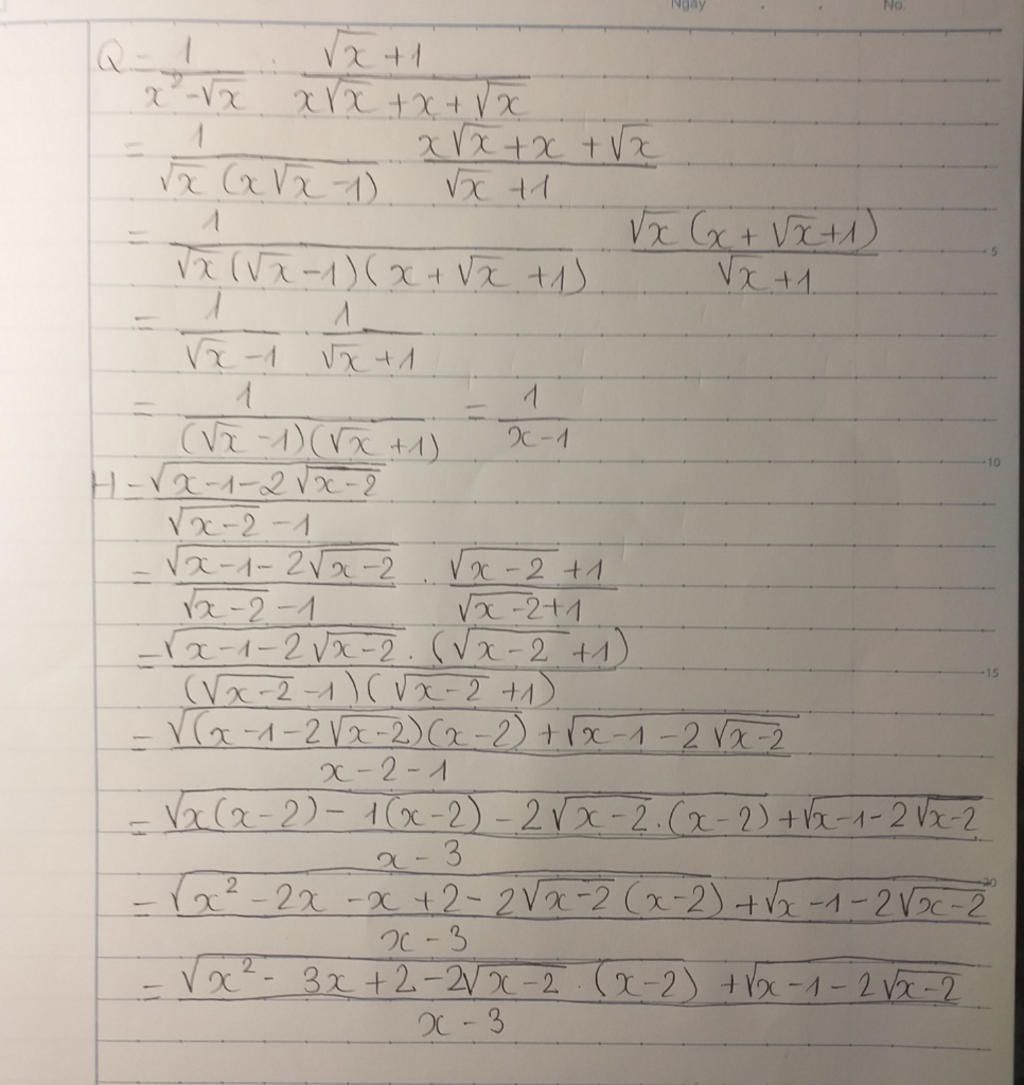 Ngày . . No.
Q = 1/(x² - √x) : (√x + 1)/(x√x + x + √x)
= 1/(√x (x√x - 1)) · (x√x + x + √x)/(√x + 1)
= 1/(√x (√x - 1)(x + √x + 1)) · (√x (x + √x + 1))/(√x + 1)
5
= 1/(√x - 1) · 1/(√x + 1)
= 1/((√x - 1)(√x + 1)) = 1/(x - 1)
10
H = √(x - 1 - 2√(x - 2))/(√(x - 2) - 1)
= √(x - 1 - 2√(x - 2))/(√(x - 2) - 1) · (√(x - 2) + 1)/(√(x - 2) + 1)
= (√(x - 1 - 2√(x - 2)) · (√(x - 2) + 1))/((√(x - 2) - 1)(√(x - 2) + 1))
15
= (√((x - 1 - 2√(x - 2))(x - 2)) + √(x - 1 - 2√(x - 2)))/(x - 2 - 1)
= (√(x(x - 2) - 1(x - 2) - 2√(x - 2) · (x - 2)) + √(x - 1 - 2√(x - 2)))/(x - 3)
20
= (√(x² - 2x - x + 2 - 2√(x - 2) (x - 2)) + √(x - 1 - 2√(x - 2)))/(x - 3)
= (√(x² - 3x + 2 - 2√(x - 2) · (x - 2)) + √(x - 1 - 2√(x - 2)))/(x - 3)